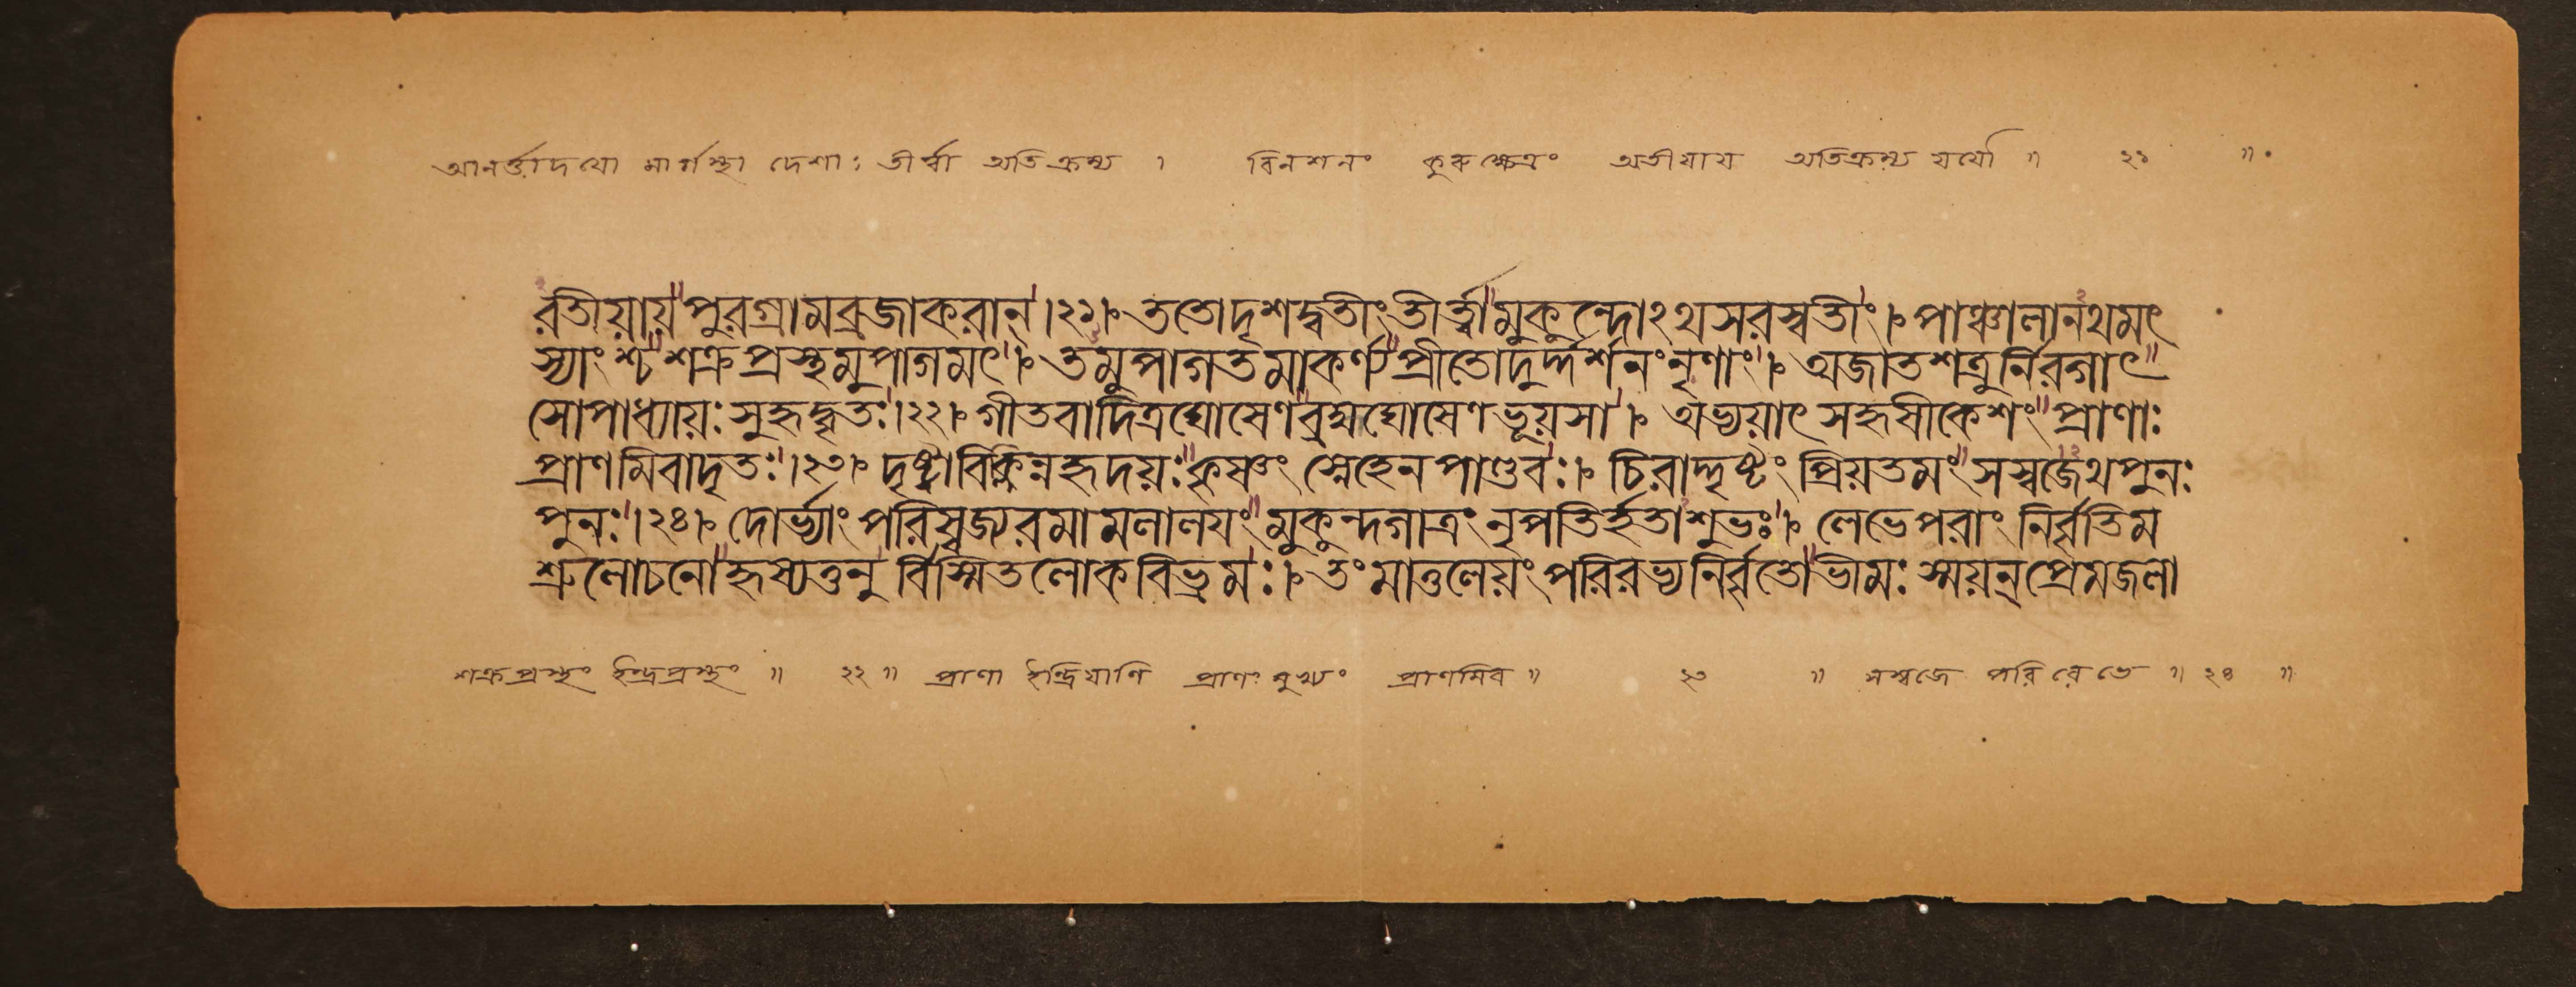 আনর্ত্তাদয়ো মার্গস্থা দেশাঃ তীর্ত্বা অতিক্রম্য । বিনশনং কুরুক্ষেত্রং অতীযায অতিক্রম্য যযৌ ॥ ২১ ॥
রতীয়ায়পুরগ্রামব্রজাকরান্।২১। ততোদৃশদ্বতীংতীর্ত্বামুকুন্দোঽথসরস্বতীং। পাঞ্চালানথমৎ
স্যাংশ্চশক্রপ্রস্থমুপাগমৎ। তমুপাগতমাকর্ণ্যপ্রীতোদুর্দ্দর্শনংনৃণাং। অজাতশত্রুর্নিরগাৎ
সোপাধ্যায়ঃসুহৃদ্বৃতঃ।২২। গীতবাদিত্রঘোষেণব্রহ্মঘোষেণভূয়সা। অভ্যয়াৎ সহৃষীকেশং প্রাণাঃ
প্রাণমিবাদৃতঃ।২৩। দৃষ্ট্বাবিক্লিন্নহৃদয়ঃকৃষ্ণং স্নেহেনপাণ্ডবঃ। চিরাদ্দৃষ্টং প্রিয়তমং সস্বজেথপুনঃ
পুনঃ।২৪। দোর্ভ্যাংপরিস্বজ্যরমামলালয়ংমুকুন্দগাত্রংনৃপতির্হতাশুভঃ। লেভেপরাং নির্বৃতিম
শ্রুলোচনোহৃষ্যত্তনুর্বিস্মিতলোকবিভ্রমঃ। তংমাতুলেয়ংপরিরভ্যনির্বৃতোভীমঃ স্ময়ন্প্রেমজলা
শক্রপ্রস্থং ইন্দ্রপ্রস্থং ॥ ২২ ॥ প্রাণা ইন্দ্রিযাণি প্রাণং মুখ্যং প্রাণমিব ॥ ২৩ ॥ সস্বজে পরিরেভে ॥ ২৪ ॥